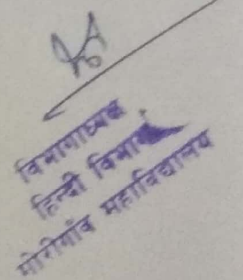 विभागाध्यक्ष
हिन्दी विभाग
मोरीगाँव महाविद्यालय